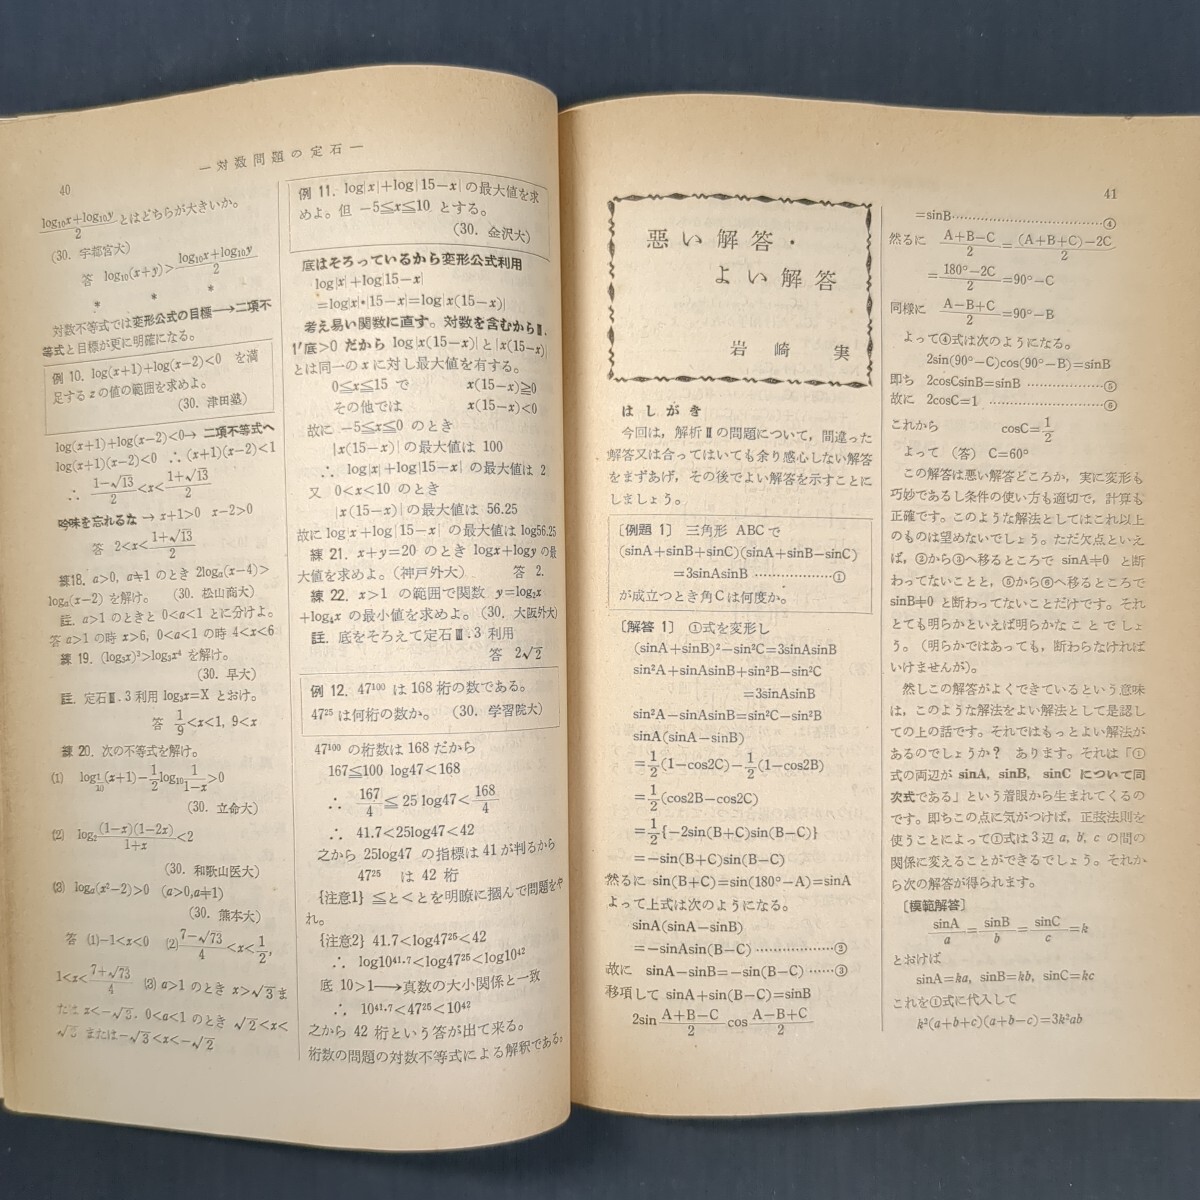 40
— 対数問題の定石 —
(log₁₀x+log₁₀y)/2 とはどちらが大きいか。
(30. 宇都宮大)
答 log₁₀(x+y)>(log₁₀x+log₁₀y)/2
* * *
対数不等式では変形公式の目標→二項不
等式と目標が更に明確になる。
例 10. log(x+1)+log(x−2)<0 を満
足する x の値の範囲を求めよ。
(30. 津田塾)
log(x+1)+log(x−2)<0→ 二項不等式へ
log(x+1)(x−2)<0 ∴(x+1)(x−2)<1
∴ (1−√13)/2<x<(1+√13)/2
吟味を忘れるな → x+1>0 x−2>0
答 2<x<(1+√13)/2
練18. a>0, a≠1 のとき 2logₐ(x−4)>
logₐ(x−2) を解け。 (30. 松山商大)
註. a>1 のときと 0<a<1 とに分けよ。
答 a>1 の時 x>6, 0<a<1 の時 4<x<6
練 19. (log₃x)²>log₃x⁴ を解け。
(30. 早大)
註. 定石Ⅲ.3 利用 log₃x=X とおけ。
答 1/9<x<1, 9<x
練 20. 次の不等式を解け。
(1) log_{1/10}(x+1)−(1/2)log₁₀ 1/(1−x)>0
(30. 立命大)
(2) log₂ (1−x)(1−2x)/(1+x)<2
(30. 和歌山医大)
(3) logₐ(x²−2)>0 (a>0,a≠1)
(30. 熊本大)
答 (1)−1<x<0 (2)(7−√73)/4<x<1/2,
1<x<(7+√73)/4 (3) a>1 のとき x>√3ま
たは x<−√3. 0<a<1 のとき √2<x<
√3 または−√3<x<−√2
例 11. log|x|+log|15−x| の最大値を求
めよ。但 −5≦x≦10 とする。
(30. 金沢大)
底はそろっているから変形公式利用
log|x|+log|15−x|
=log|x|•|15−x|=log|x(15−x)|
考え易い関数に直す。対数を含むからⅡ.
1′底>0 だから log|x(15−x)|と|x(15−x)|
とは同一の x に対し最大値を有する。
0≦x≦15 で x(15−x)≧0
その他では x(15−x)<0
故に −5≦x≦0 のとき
|x(15−x)|の最大値は 100
∴ log|x|+log|15−x| の最大値は 2
又 0<x<10 のとき
|x(15−x)|の最大値は 56.25
故に log|x|+log|15−x| の最大値は log56.25
練 21. x+y=20 のとき logx+logy の最
大値を求めよ。(神戸外大) 答 2.
練 22. x>1 の範囲で関数 y=log₂x
+log₄x の最小値を求めよ。(30. 大阪外大)
註. 底をそろえて定石Ⅲ.3 利用
答 2√2
例 12. 47¹⁰⁰ は 168 桁の数である。
47²⁵ は何桁の数か。 (30. 学習院大)
47¹⁰⁰ の桁数は 168 だから
167≦100 log47<168
∴ 167/4≦25 log47<168/4
∴ 41.7<25log47<42
之から 25log47 の指標は 41 が判るから
47²⁵ は 42 桁
{注意1} ≦と<とを明瞭に摑んで問題をや
れ。
{注意2} 41.7<log47²⁵<42
∴ log10⁴¹·⁷<log47²⁵<log10⁴²
底 10>1→真数の大小関係と一致
∴ 10⁴¹·⁷<47²⁵<10⁴²
之から 42 桁という答が出て来る。
桁数の問題の対数不等式による解釈である。
41
悪い解答・
よい解答
岩崎 実
はしがき
今回は，解析Ⅱの問題について，間違った
解答又は合ってはいても余り感心しない解答
をまずあげ，その後でよい解答を示すことに
しましょう。
[例題 1] 三角形 ABC で
(sinA+sinB+sinC)(sinA+sinB−sinC)
=3sinAsinB ………………①
が成立つとき角Cは何度か。
[解答 1] ①式を変形し
(sinA+sinB)²−sin²C=3sinAsinB
sin²A+sinAsinB+sin²B−sin²C
=3sinAsinB
sin²A−sinAsinB=sin²C−sin²B
sinA(sinA−sinB)
=1/2(1−cos2C)−1/2(1−cos2B)
=1/2(cos2B−cos2C)
=1/2{−2sin(B+C)sin(B−C)}
=−sin(B+C)sin(B−C)
然るに sin(B+C)=sin(180°−A)=sinA
よって上式は次のようになる。
sinA(sinA−sinB)
=−sinAsin(B−C) ………………②
故に sinA−sinB=−sin(B−C) ……③
移項して sinA+sin(B−C)=sinB
2sin (A+B−C)/2 cos (A−B+C)/2
=sinB………………………………④
然るに (A+B−C)/2=((A+B+C)−2C)/2
=(180°−2C)/2=90°−C
同様に (A−B+C)/2=90°−B
よって④式は次のようになる。
2sin(90°−C)cos(90°−B)=sinB
即ち 2cosCsinB=sinB ………………⑤
故に 2cosC=1 ………………………⑥
これから cosC=1/2
よって (答) C=60°
この解答は悪い解答どころか，実に変形も
巧妙であるし条件の使い方も適切で，計算も
正確です。このような解法としてはこれ以上
のものは望めないでしょう。ただ欠点といえ
ば，②から③へ移るところで sinA≠0 と断
わってないことと，⑤から⑥へ移るところで
sinB≠0 と断わってないことだけです。それ
とても明らかといえば明らかなことでしょ
う。（明らかではあっても，断わらなければ
いけませんが）。
然しこの解答がよくできているという意味
は，このような解法をよい解法として是認し
ての上の話です。それではもっとよい解法が
あるのでしょうか？ あります。それは「①
式の両辺が sinA, sinB, sinC について同
次式である」という着眼から生まれてくるの
です。即ちこの点に気がつけば，正弦法則を
使うことによって①式は3辺 a, b, c の間の
関係に変えることができるでしょう。それか
ら次の解答が得られます。
[模範解答]
sinA/a=sinB/b=sinC/c=k
とおけば
sinA=ka, sinB=kb, sinC=kc
これを①式に代入して
k²(a+b+c)(a+b−c)=3k²ab